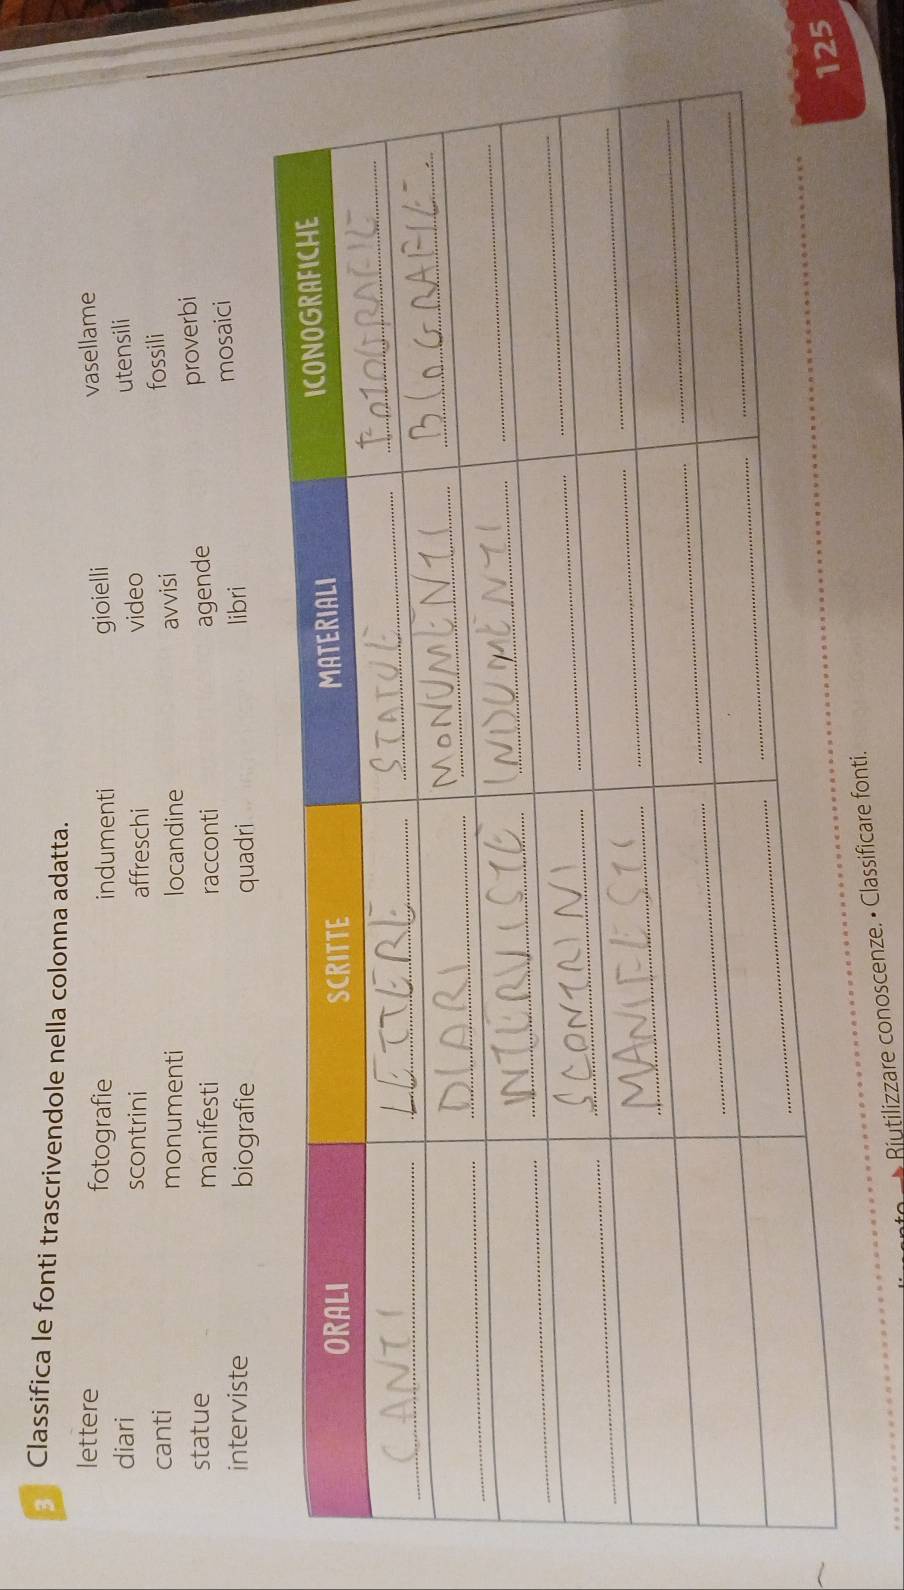 3 Classifica le fonti trascrivendole nella colonna adatta.
lettere fotografie indumenti gioielli vasellame
diari scontrini affreschi video utensili
canti monumenti locandine avvisi fossili
statue manifesti racconti agende proverbi
interviste biografie quadri libri mosaici
ORALI SCRITTE MATERIALI ICONOGRAFICHE
CANTI LETTERE STATUE FOTOGRAFIE
DIARI MONUMENTI BIOGRAFIE
INTERVISTE INDUMENTI
SCONTRINI
MANIFESTI
Riutilizzare conoscenze. • Classificare fonti.
125